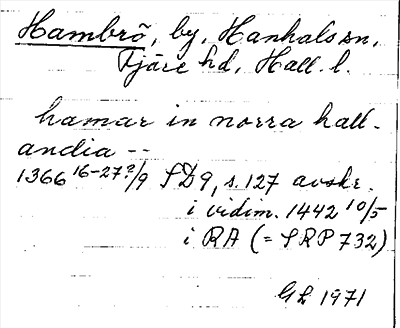 Hambrö, by, Hanhals sn,
Fjäre hd, Hall. l.
hamar in norra hall-
andia --
1366 16-27?/9 SD9, s. 127 avskr.
i vidim. 1442 10/5
i RA (= SRP 732)
GL 1971